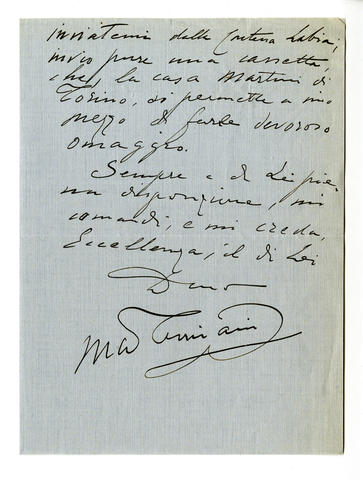 inviatemi dalla Contessa Labia,
invio pure una cassetta,
che, la casa Martini di
Torino, si permette a mio
mezzo di farle devoroso
omaggio.
Sempre a di Lei pie-
na disposizione, mi
comandi, e mi creda,
Eccellenza, il di Lei